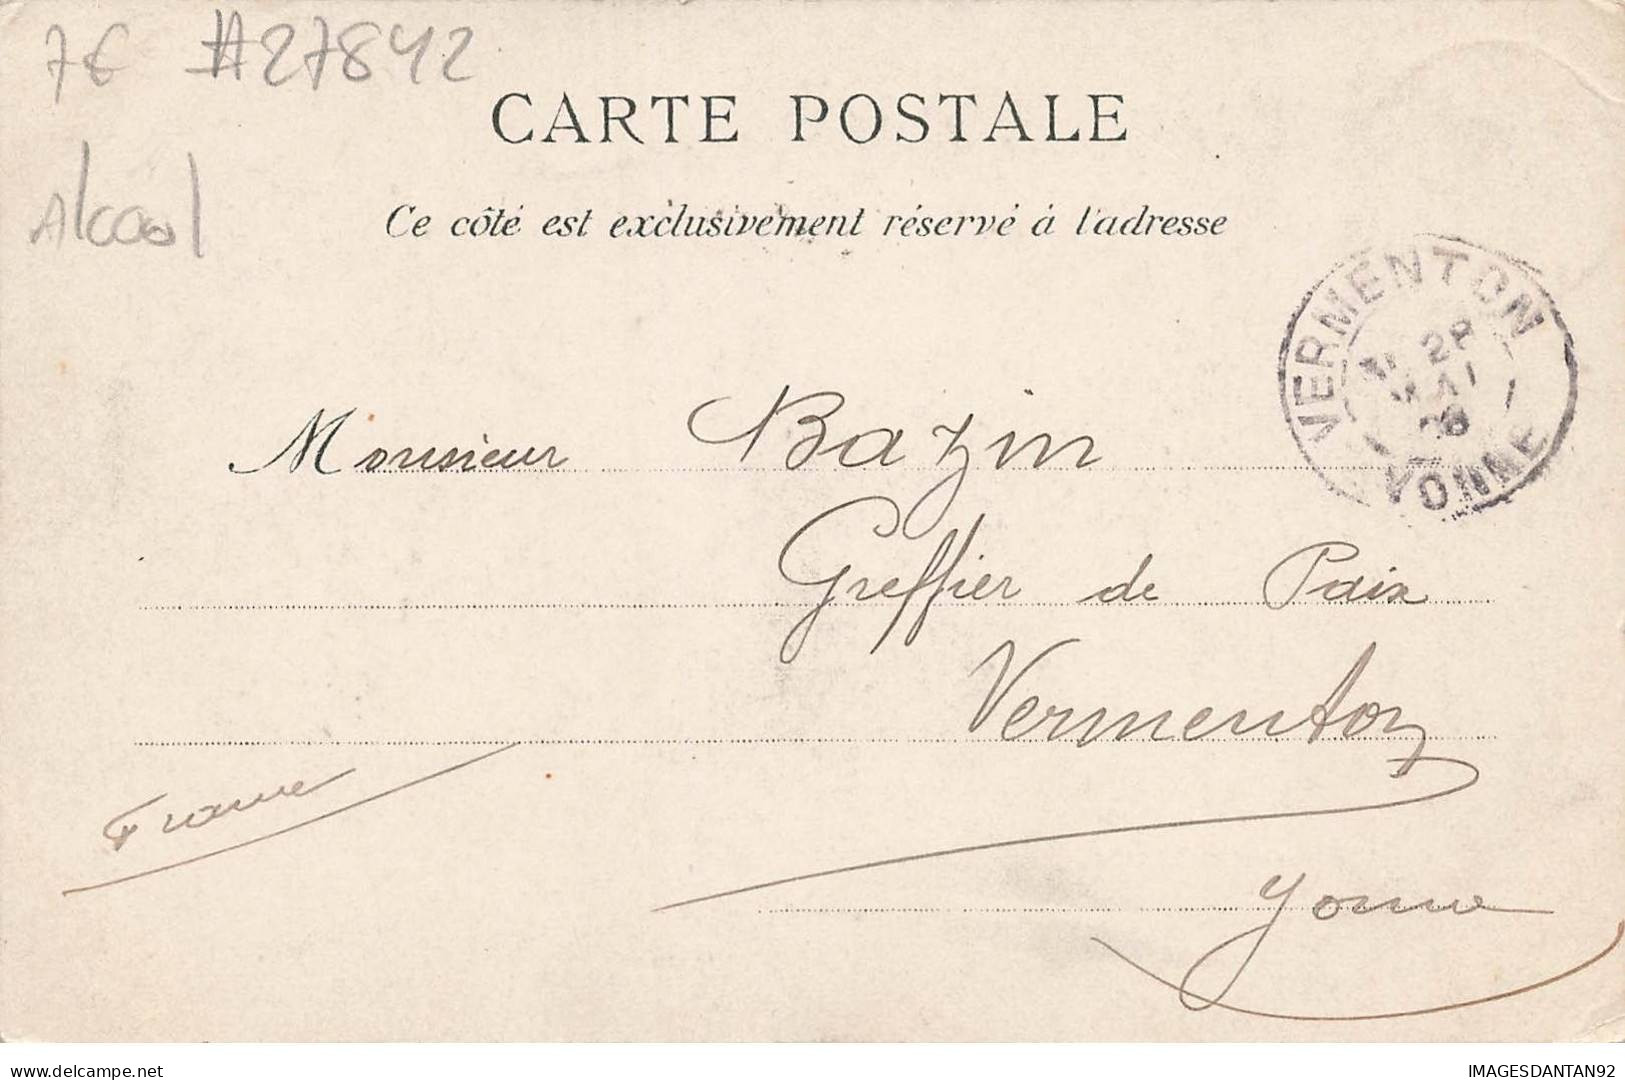 7€ #27842
CARTE POSTALE
Alcool
Ce côté est exclusivement réservé à l'adresse
VERMENTON
28
MAI
06
YONNE
Monsieur Bazin
Greffier de Paix
Vermenton
France
Yonne
delcampe.net
IMAGESDANTAN92